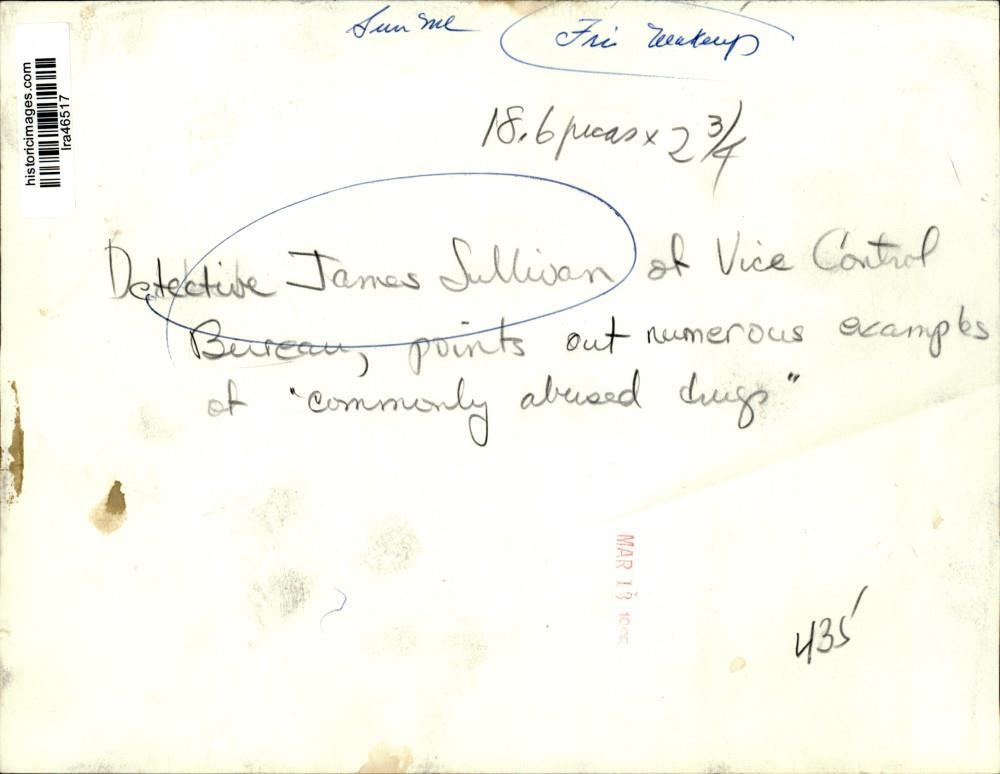 Fri Makeup
18.6 picas x 2 3/4
Detective James Sullivan of Vice Control
Bureau, points out numerous examples
of "commonly abused drugs"
historicimages.com
lra46517
MAR 13
435